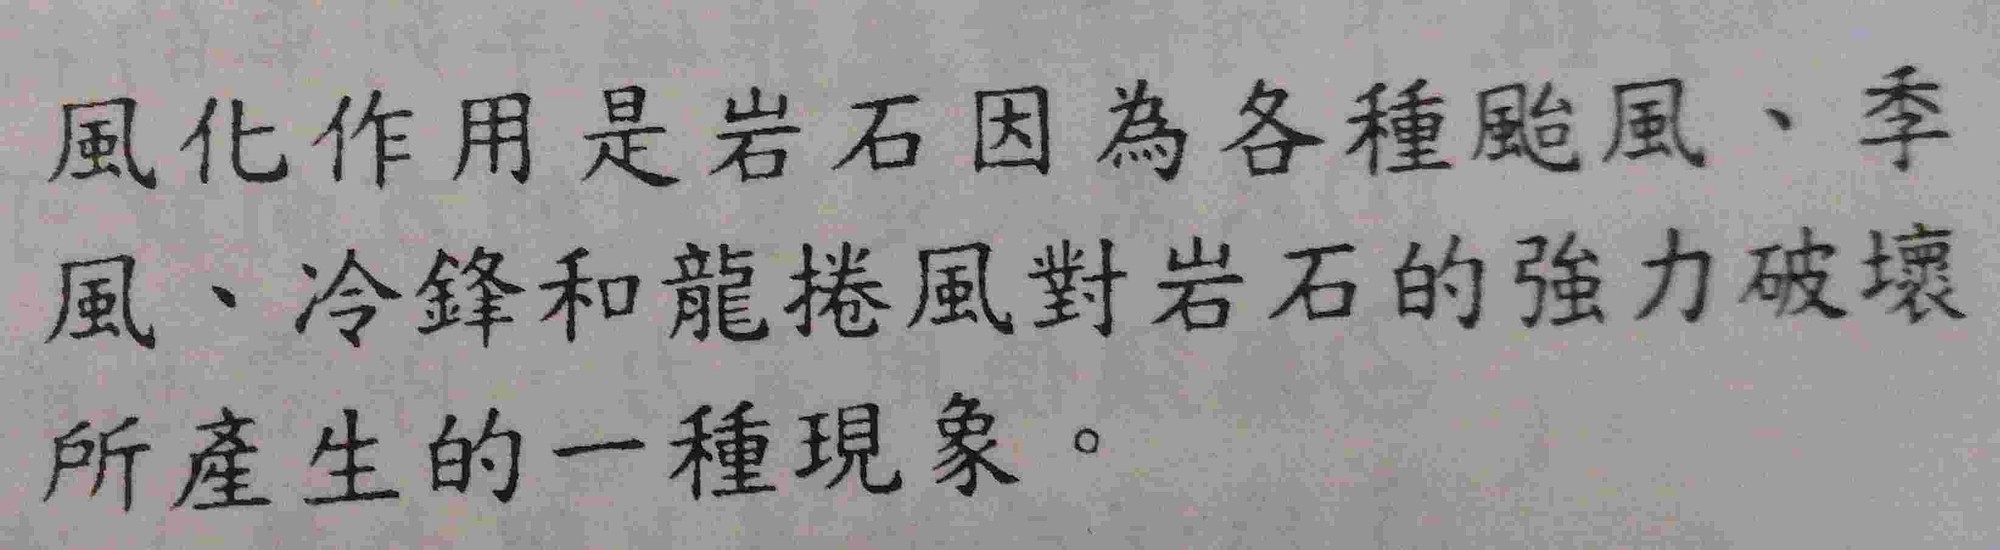 風化作用是岩石因為各種颱風、季
風、冷鋒和龍捲風對岩石的強力破壞
所產生的一種現象。